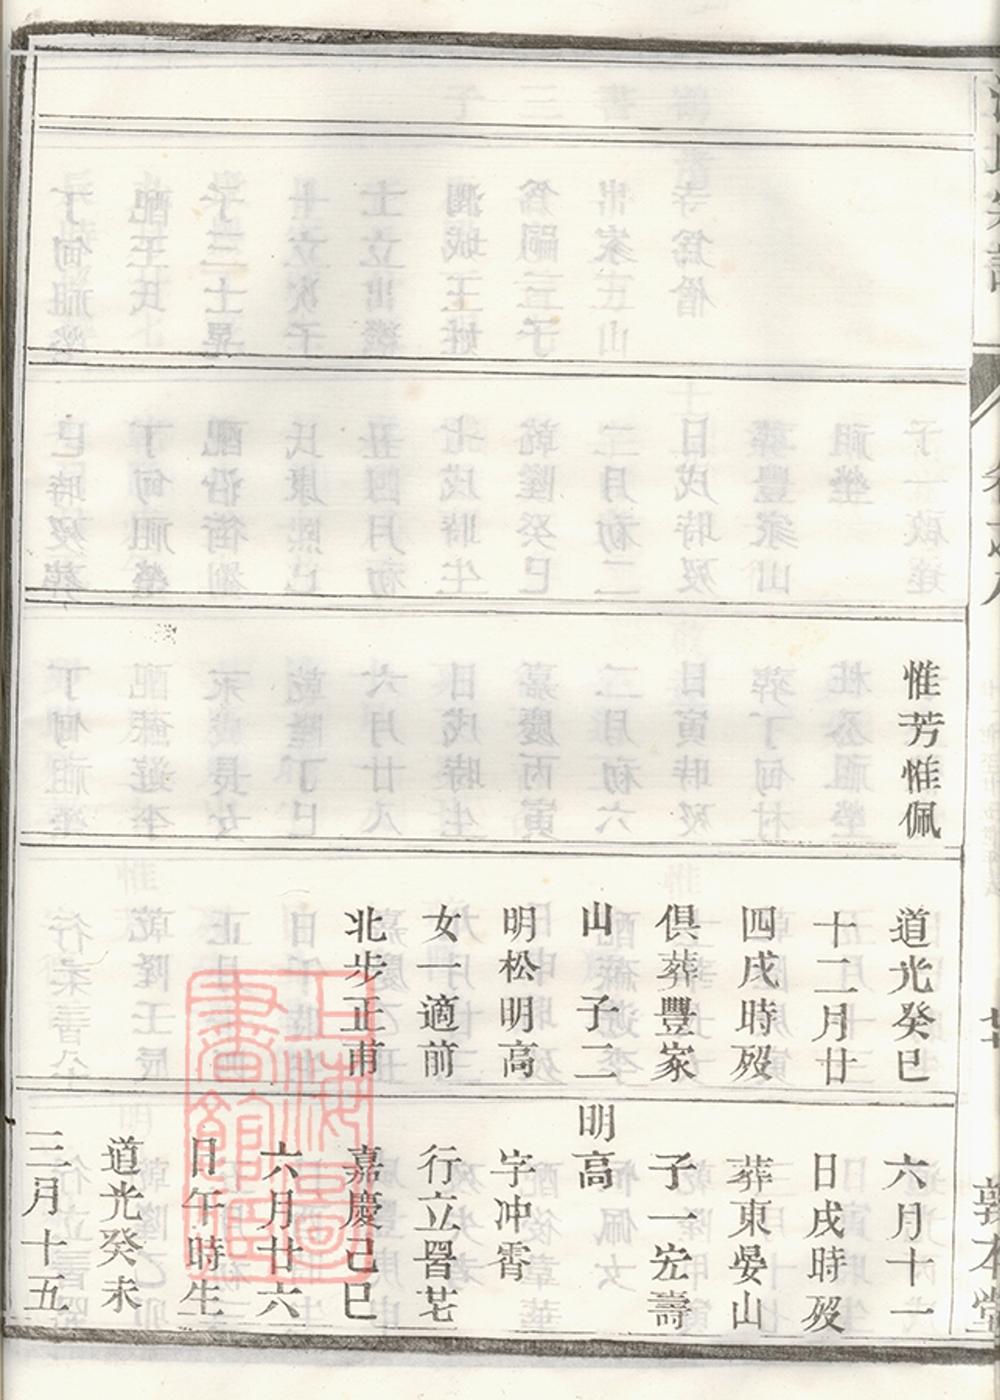 惟芳惟佩
道光癸巳
十二月廿
四戌時殁
俱葬豐家
山 子二
明松明高
女一適前
北步正甫
六月十一
日戌時殁
葬東晏山
子一宏壽
明高
字冲霄
行立罯茋
嘉慶己巳
六月廿六
日午時生
道光癸未
三月十五
敦本堂
上海圖書館藏